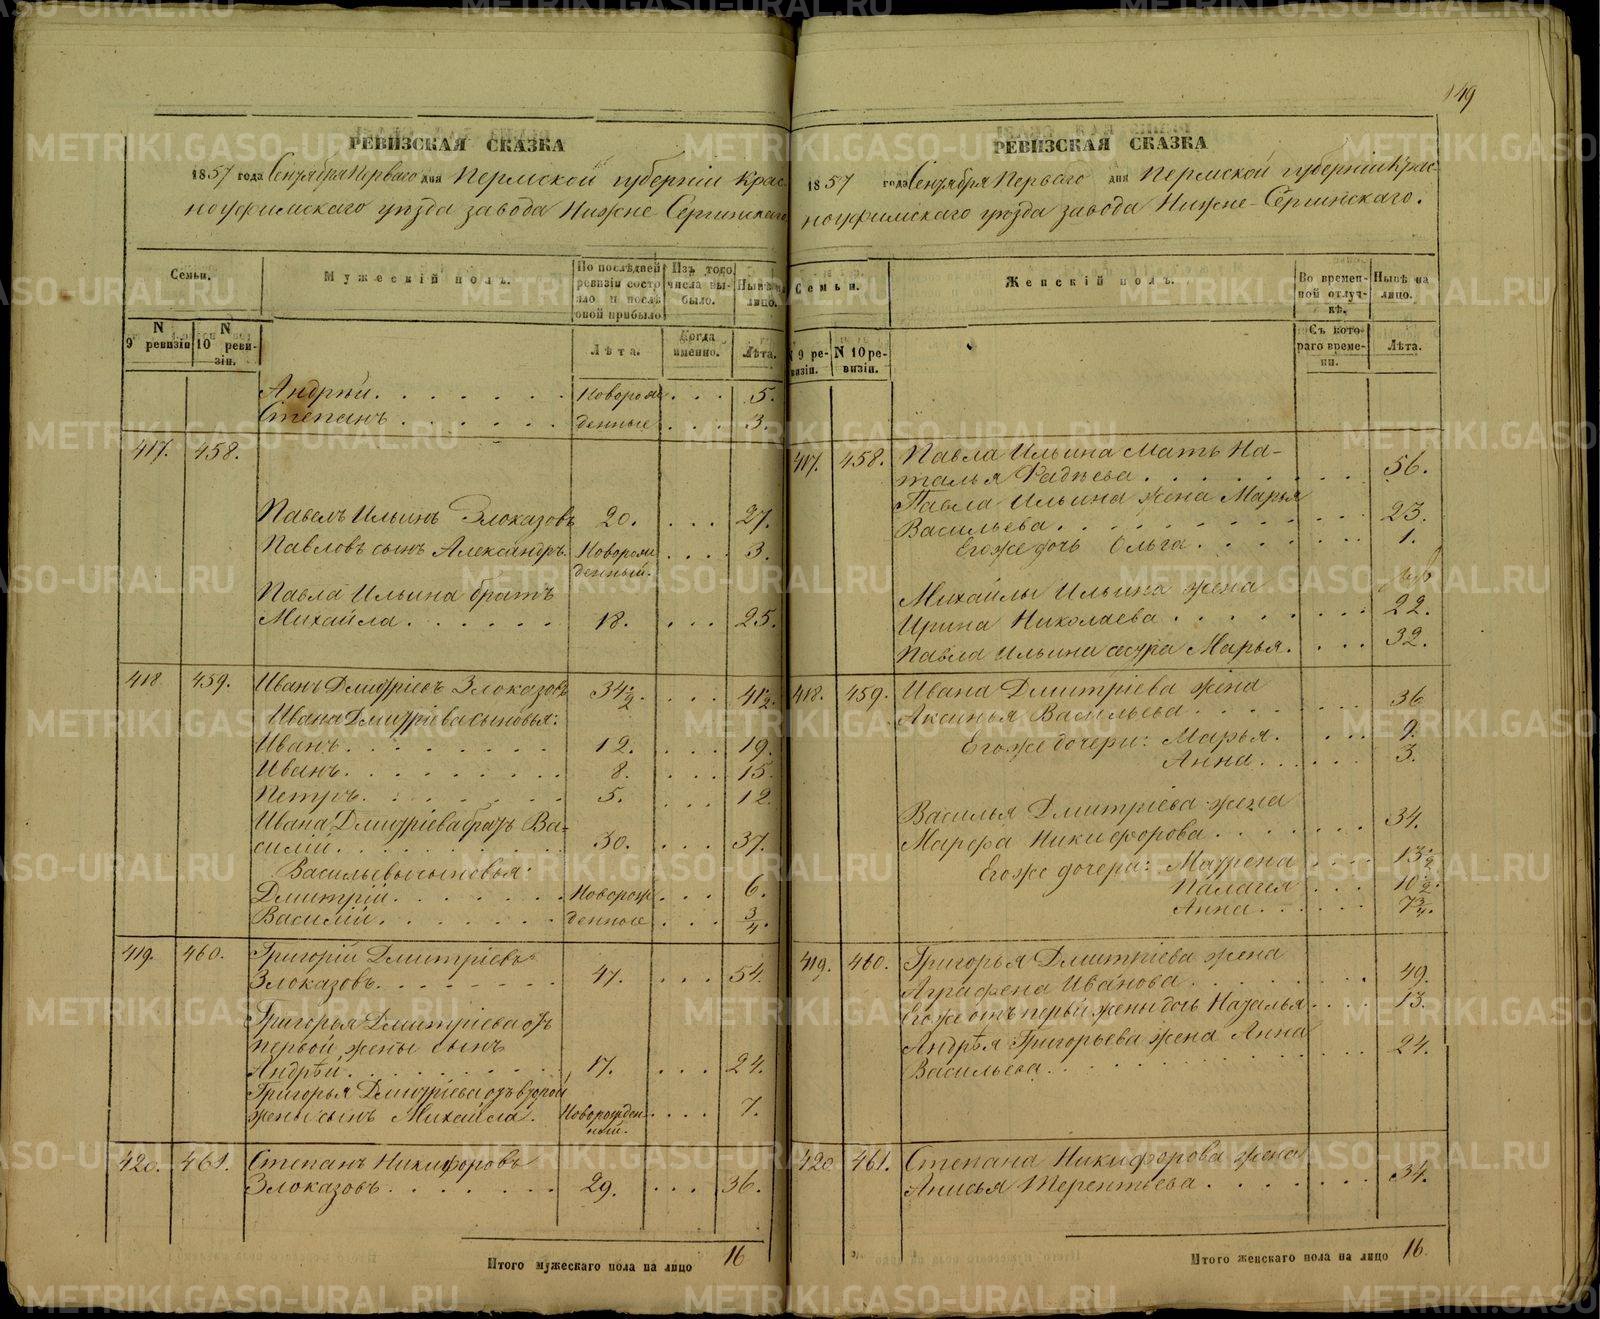 149
РЕВИЗСКАЯ СКАЗКА
1857 года Сентября Перваго дня Пермской губерніи Крас-
ноуфимскаго уѣзда завода Нижне Сергинскаго
Семьи.
Мужескій полъ.
По послѣдней ревизіи состояло и послѣ оной прибыло
Изъ того числа выбыло.
Нынѣ на лицо.
N 9 ревизіи
N 10 ревизіи.
Лѣта.
Когда именно.
Лѣта.
Андрѣй. Новорож 5.
Степанъ денные 3.
417. 458.
Павелъ Ильинъ Злоказовъ 20. 27.
Павловъ сынъ Александръ. Новорож 3.
денный.
Павла Ильина братъ
Михайла 18. 25.
418 459. Иванъ Дмитріевъ Злоказовъ 34½. 41½.
Ивана Дмитріева сыновья:
Иванъ. 12. 19.
Иванъ. 8. 15.
Петръ. 5. 12
Ивана Дмитріева братъ Ва-
силій. 30. 37.
Васильевы сыновья:
Дмитрій Новорож 6.
Василій денные ¾.
419. 460. Григорій Дмитріевъ
Злоказовъ. 47. 54.
Григорья Дмитріева отъ
первой жены сынъ
Андрѣй. 17. 24.
Григорья Дмитріева отъ второй
жены сынъ Михайла. Новорожден 7.
ный.
420. 461. Степанъ Никифоровъ
Злоказовъ. 29. 36.
Итого мужескаго пола на лицо 16
РЕВИЗСКАЯ СКАЗКА
1857 года Сентября Перваго дня Пермской губерніи Крас-
ноуфимскаго уѣзда завода Нижне-Сергинскаго.
Семьи.
Женскій полъ.
Во временной отлучкѣ.
Нынѣ на лицо.
N 9 ревизіи.
N 10 ревизіи.
Съ котораго времени.
Лѣта.
417. 458. Павла Ильина Мать На-
талья Фадѣева 56.
Павла Ильина жена Марья
Васильева. 23.
Егоже дочь Ольга. 1.
Михайлы Ильина жена
Ирина Николаева 22.
Павла Ильина сестра Марья. 32.
418. 459. Ивана Дмитріева жена
Аксинья Васильева 36
Егоже дочери: Марья. 9.
Анна. 3.
Василья Дмитріева жена
Марфа Никифорова 34.
Егоже дочери: Матрена 13½
Палагея 10½.
Анна. 7¾.
419. 460. Григорья Дмитріева жена
Аграфена Иванова 49.
Егоже отъ первой жены дочь Наталья 13.
Андрѣя Григорьева жена Анна
Васильева. 24.
420 461. Степана Никифорова жена
Анисья Терентьева 34.
Итого женскаго пола на лицо 16.
METRIKI.GASO-URAL.RU